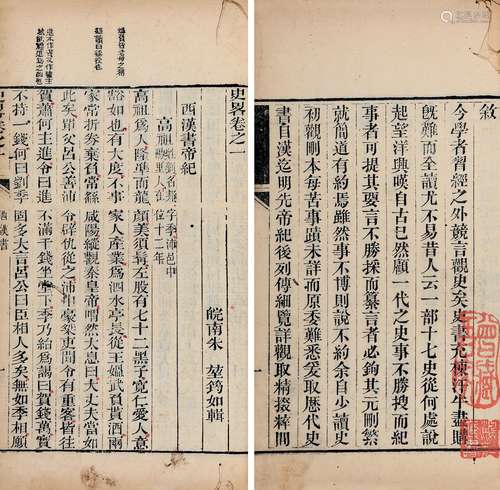 敘
今學者習經之外競言觀史矣史書充棟汗牛盡購
旣難而全讀尤不易昔人云一部十七史從何處說
起望洋興嘆自古已然顧一代之史事不勝搜而紀
事者可提其要言不勝採而纂言者必鉤其元刪繁
就簡道有約焉雖然事不博則說不約余自少讀史
初觀剛本每苦事蹟未詳而原委難悉爰取歷代史
書自漢迄明先帝紀後列傳細覽詳觀取精掇粹間
史畧卷之一
皖南朱 堃鎢如輯
西漢書帝紀
高祖姓劉名邦字季沛邑中
陽里人在位十二年
高祖爲人隆準而龍顏美須髯左股有七十二黑子寬仁愛人意
媼負皆老母之稱
豁如也有大度不事家人產業爲泗水亭長從王媼武負貰酒兩
繇讀曰徭役也
家常折券棄責常繇咸陽縱觀秦皇帝喟然大息曰大丈夫當如
此矣單父呂公善沛令辟仇從之沛中豪桀吏聞令有重客皆往
賀蕭何主進令曰進不滿千錢坐堂下季乃紿爲謁曰賀錢萬實
不持一錢何曰劉季固多大言呂公曰臣相人多矣無如季相願